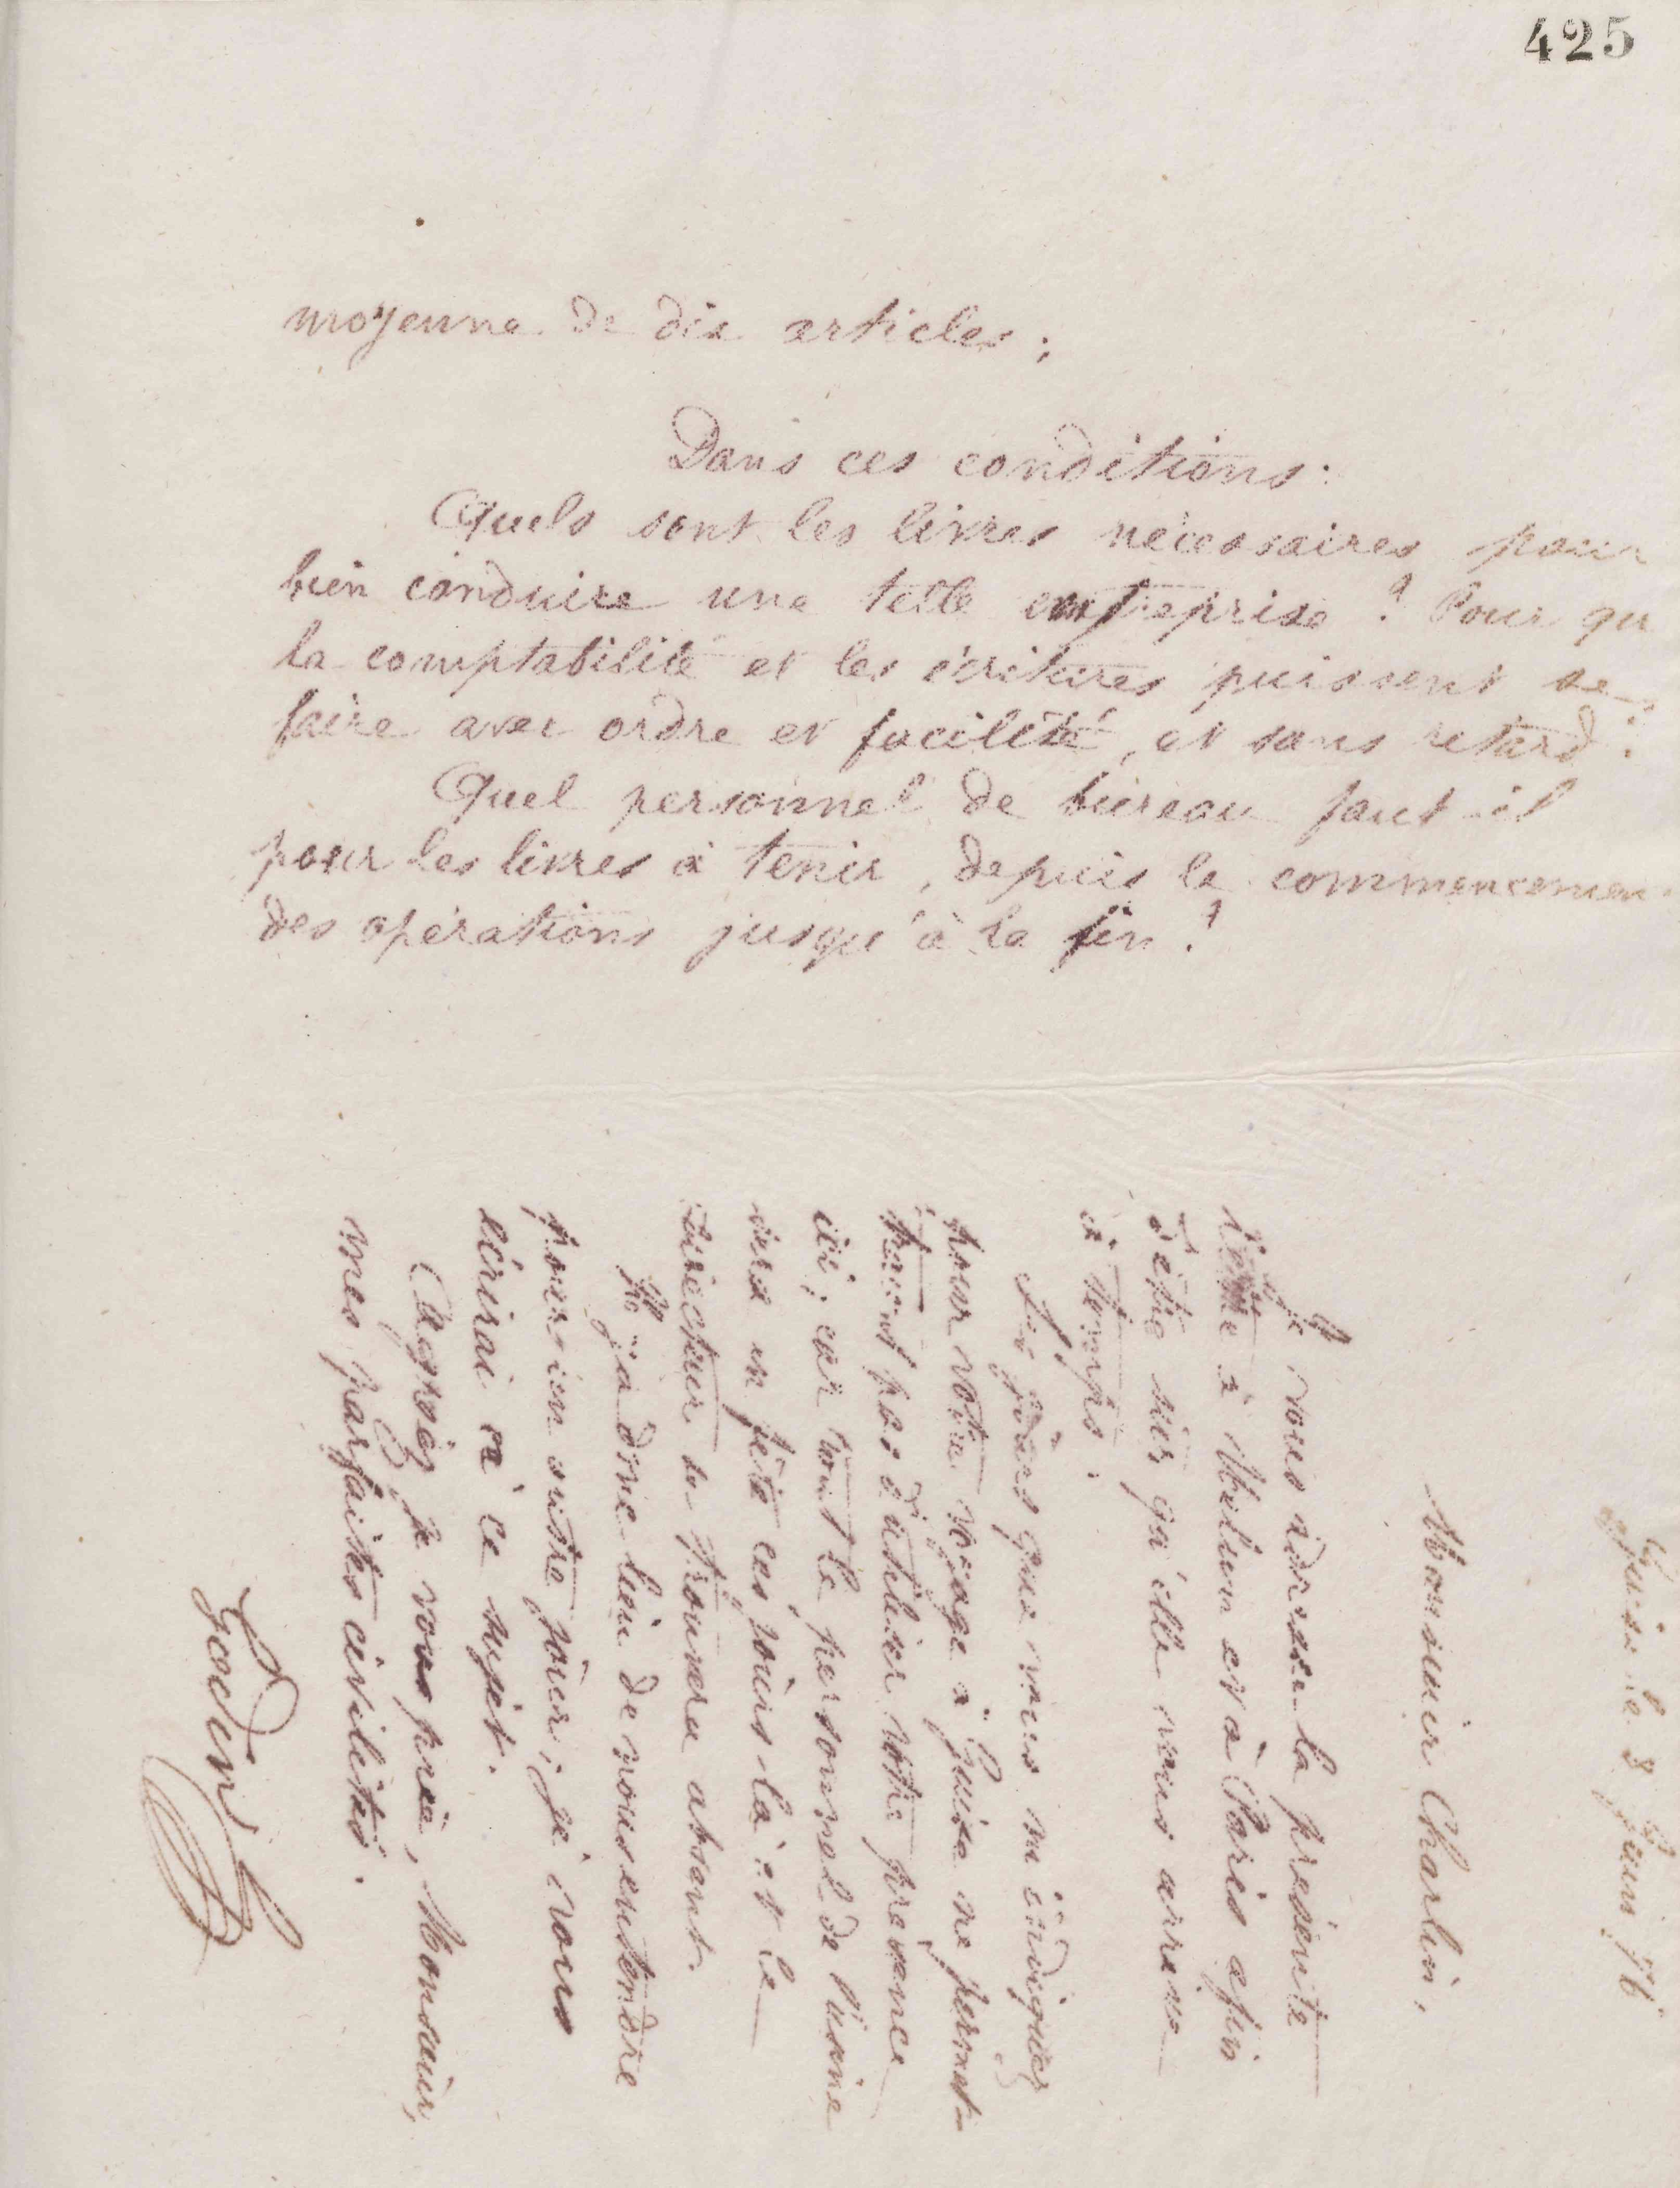 425
moyenne de dix articles ;
Dans ces conditions :
Quels sont les livres nécessaires pour
bien conduire une telle entreprise ? Pour qu
la comptabilité et les écritures puissent se
faire avec ordre et facilité, et sans retard ?
Quel personnel de bureau faut-il
pour les livres à tenir, depuis le commencemen
des opérations jusqu'à la fin ?
Guise le 3 Juin 76
Monsieur Charlin,
Je vous adresse la présente
lettre à Melun et à Paris afin
d'être sûr qu'elle vous arrive
à temps.
Les jours que vous m'indiquez
pour votre voyage à Guise ne permet-
traient pas d'utiliser votre présence
ici ; car tout le personnel de l'usine
sera en fête ces jours-là et le
directeur se trouvera absent.
Il y a donc lieu de nous entendre
pour un autre jour ; je vous
écrirai à ce sujet.
Agréez je vous prie, Monsieur,
mes parfaites civilités.
Godin